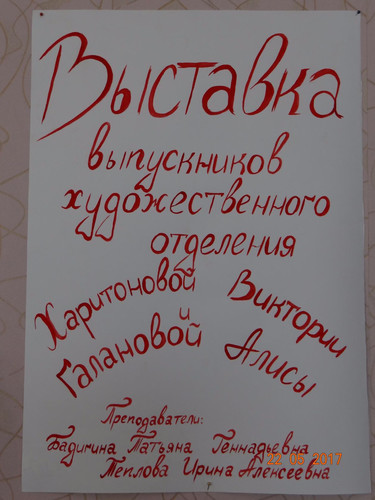 Выставка
выпускников
художественного
отделения
Харитоновой Виктории
и
Галановой Алисы
Преподаватели:
Бадигина Татьяна Геннадьевна
Теплова Ирина Алексеевна
22 06 2017